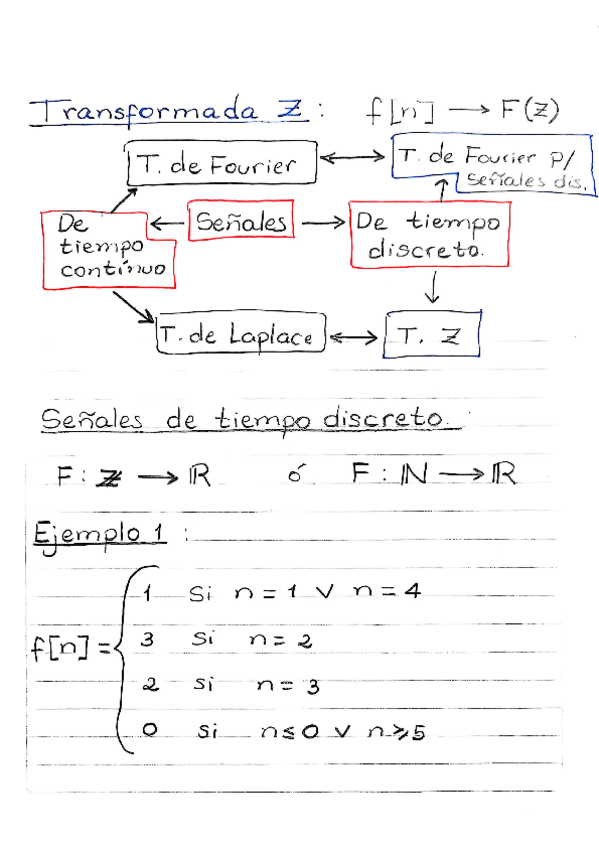 Transformada Z : f[n] → F(Z)
T. de Fourier ↔ T. de Fourier p/
Señales dis.
De
tiempo
contínuo
← Señales →
De tiempo
discreto.
T. de Laplace ↔ T. Z
Señales de tiempo discreto.
F : ℤ → ℝ ó F : ℕ → ℝ
Ejemplo 1 :
f[n] = {
1 si n = 1 ∨ n = 4
3 si n = 2
2 si n = 3
0 si n ≤ 0 ∨ n ≥ 5